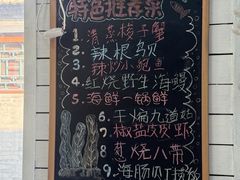 特色推荐菜
1 清蒸梭子蟹
2 辣根鸟贝
3 辣炒小鲍鱼
4 红烧野生海鳗
5 海鲜一锅鲜
6 干煸九道弯
7 椒盐皮皮虾
8 葱烧八带
9 海肠